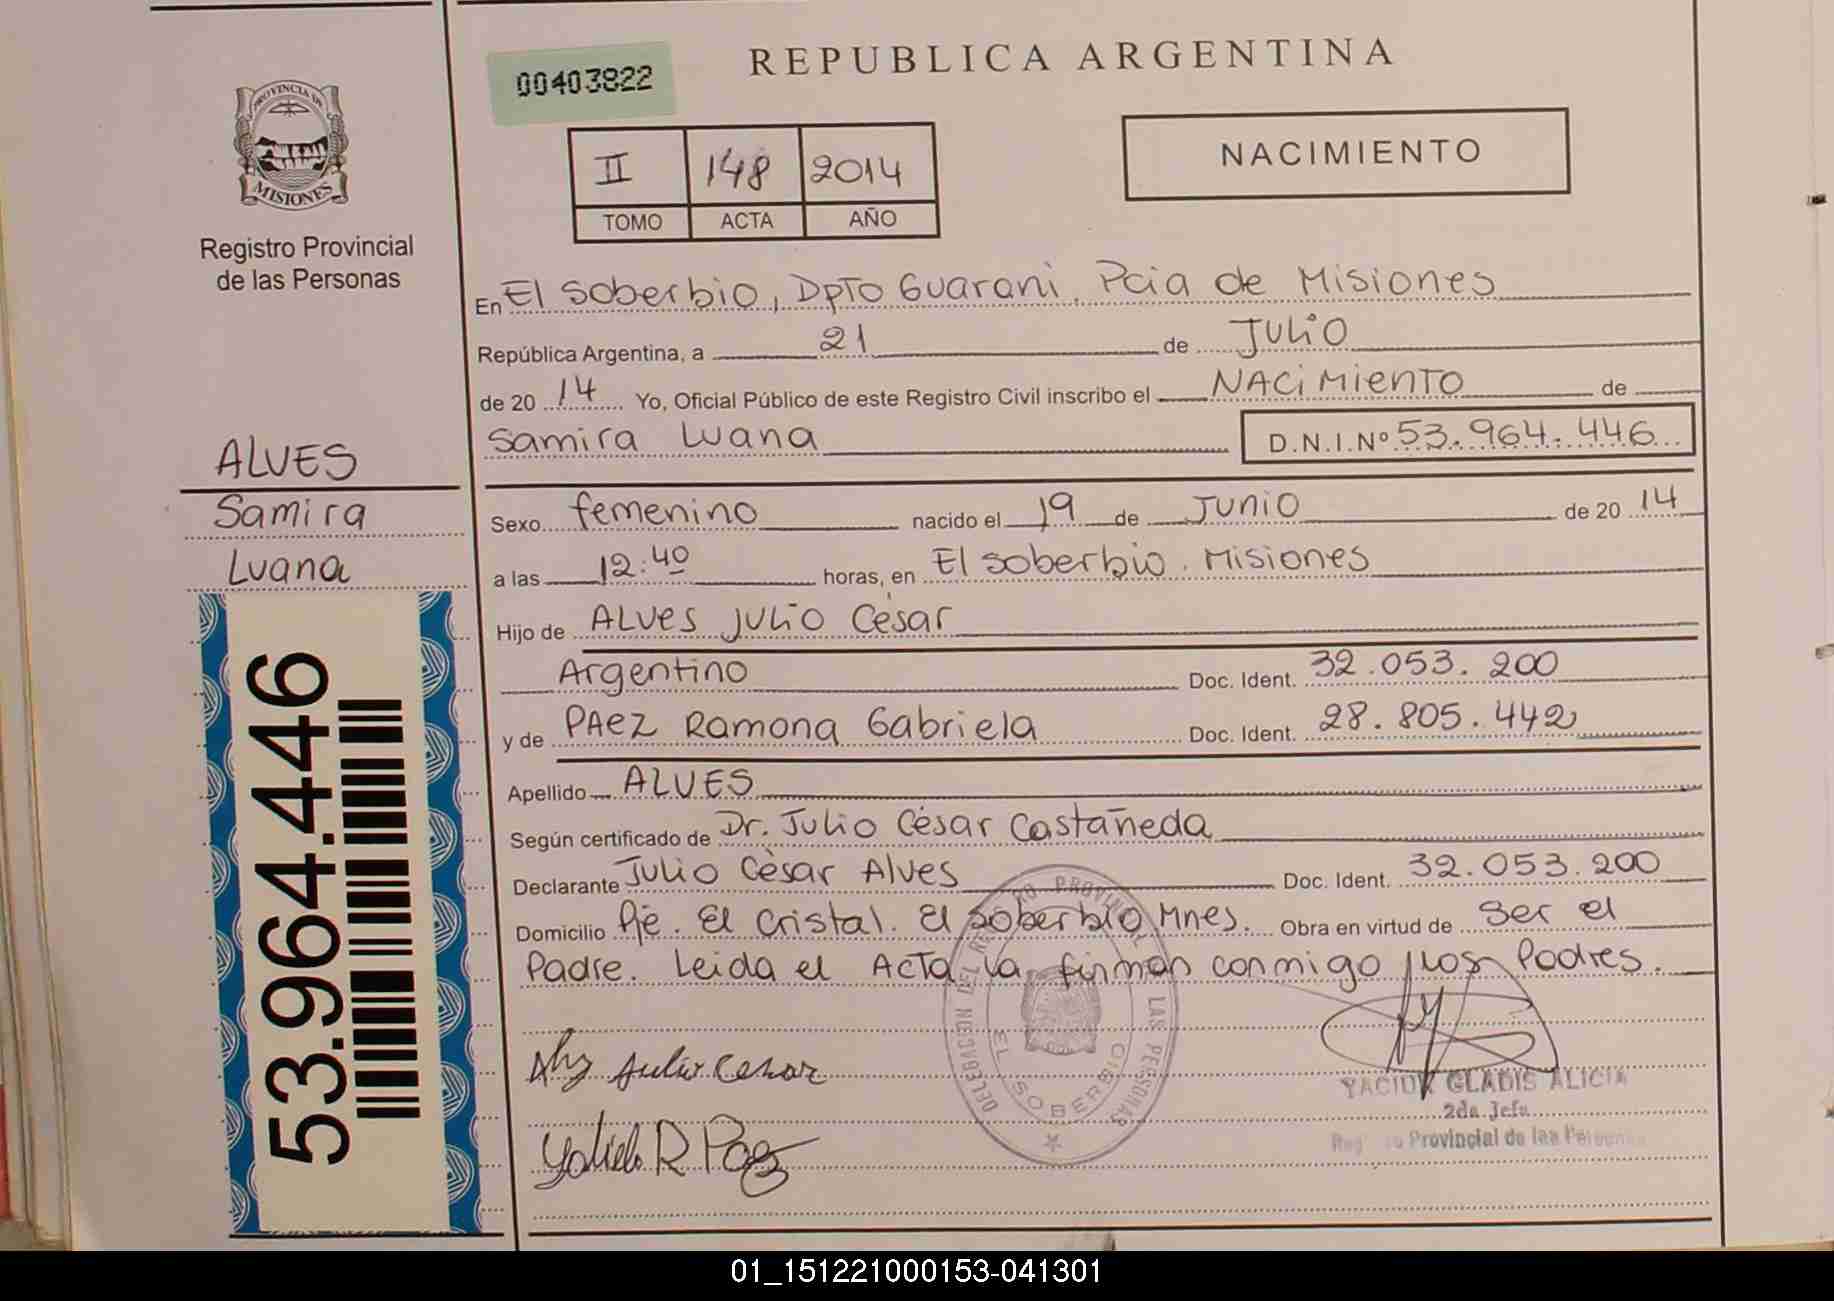 REPUBLICA ARGENTINA
00403822
PROVINCIA DE
MISIONES
Registro Provincial
de las Personas
II 148 2014
TOMO ACTA AÑO
NACIMIENTO
En El Soberbio, Dpto Guarani, Pcia de Misiones
República Argentina, a 21 de Julio
de 20 14 Yo, Oficial Público de este Registro Civil inscribo el NACiMiENTO de
Samira Luana D.N.I.Nº 53.964.446
ALVES
Samira
Luana
Sexo femenino nacido el 19 de Junio de 20 14
a las 12:40 horas, en El Soberbio. Misiones
Hijo de ALVES Julio César
Argentino Doc. Ident. 32.053.200
y de PAEZ Ramona Gabriela Doc. Ident. 28.805.442
Apellido ALVES
Según certificado de Dr. Julio César Castañeda
Declarante Julio César Alves Doc. Ident. 32.053.200
Domicilio Pje. El Cristal. El Soberbio Mnes. Obra en virtud de Ser el
Padre. Leida el ACTA la firman conmigo los Padres.
53.964.446
DELEGACION DEL REGISTRO PROVINCIAL DE LAS PERSONAS
EL SOBERBIO
Julio Cesar
R Paez
GLADIS ALICIA
2da Jefa
Provincial de las Personas
01_151221000153-041301